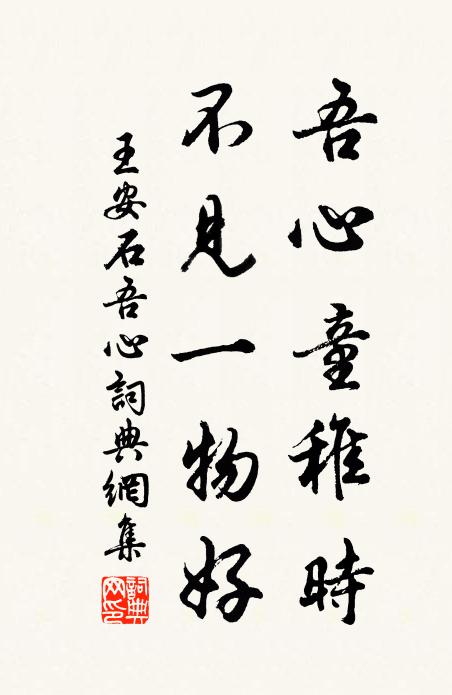 吾心童稚時
不見一物好
王安石吾心詞典網集
詞典網印